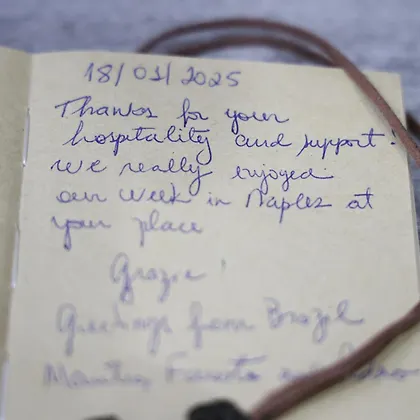 18/01/2025
Thanks for your
hospitality and support.
we really enjoyed
our week in Naples at
your place
Grazie!
Greetings from Brazil
and